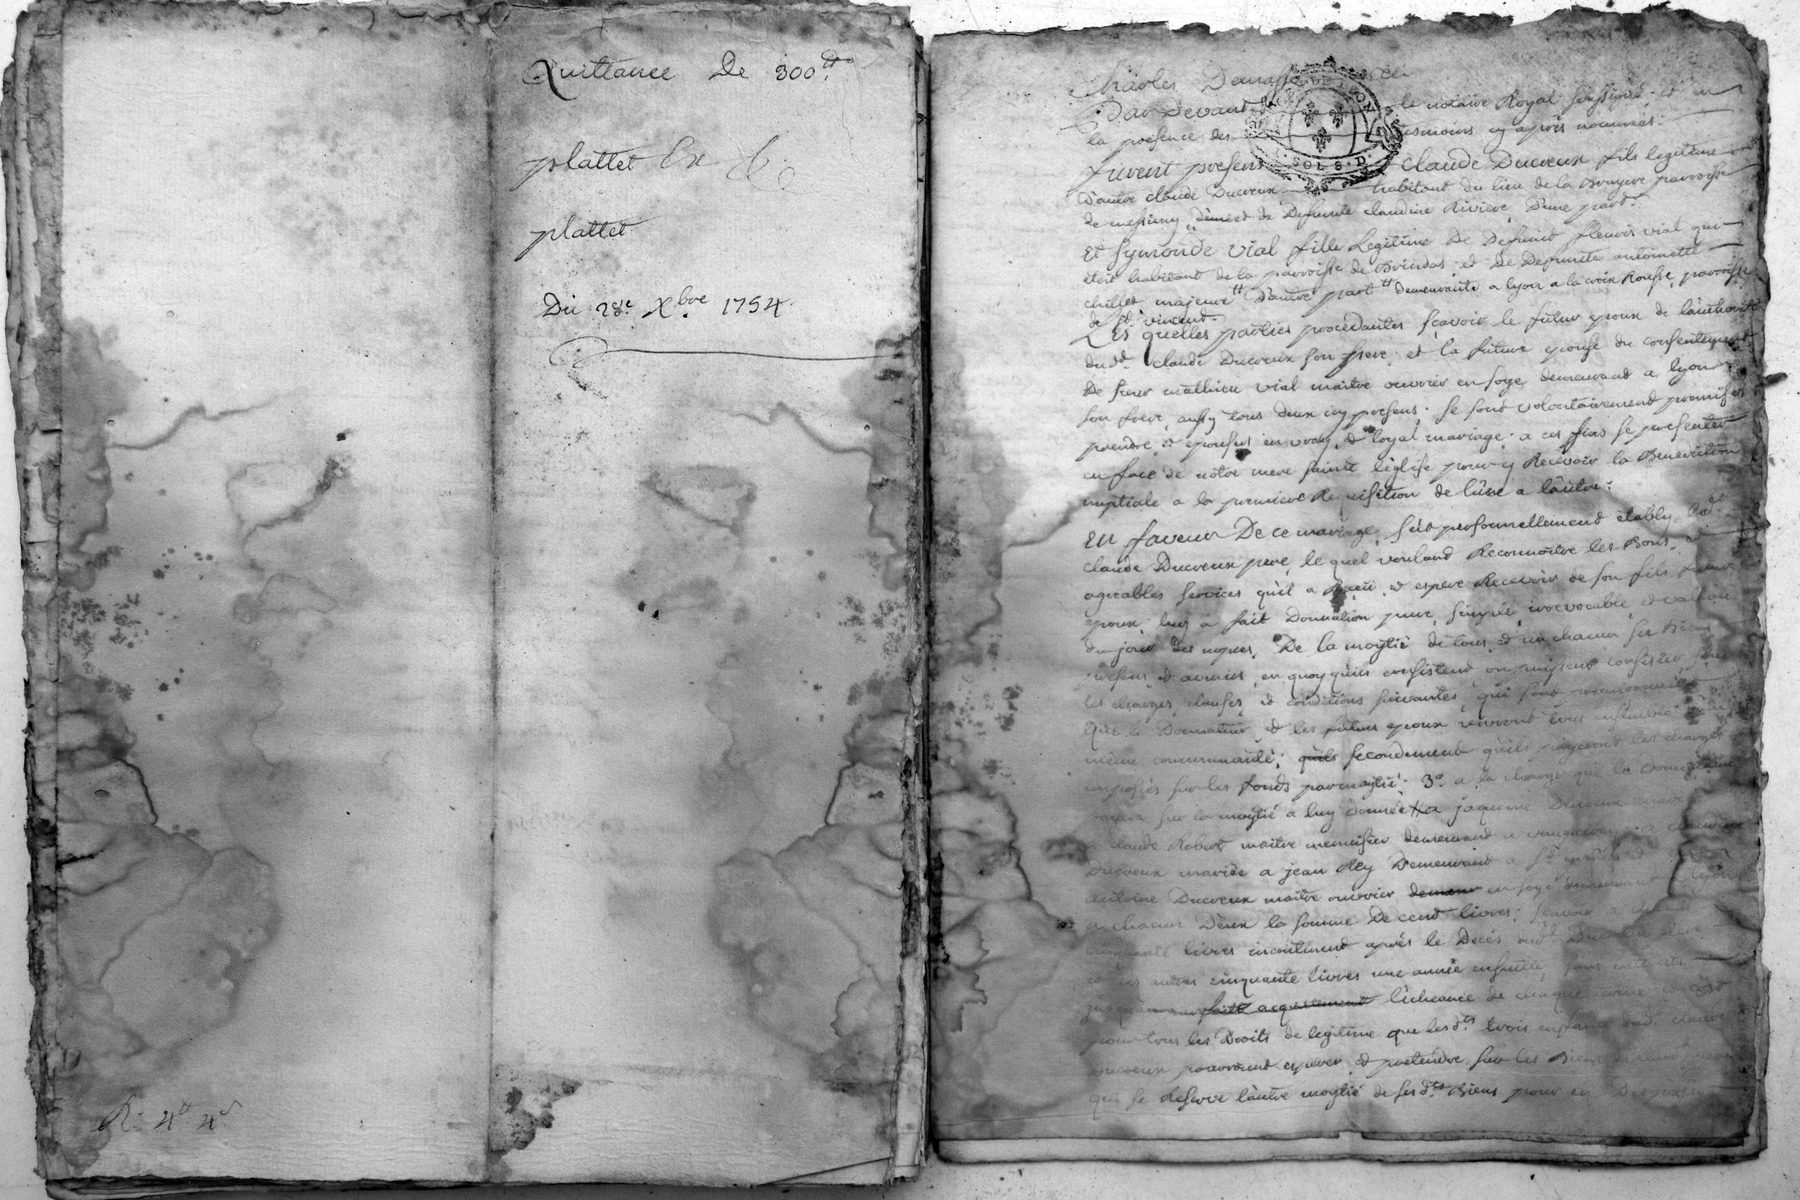 Quittance De 300 tt.
plattet Ex
plattet
Du 28e. Xbre. 1754.
R. 4 tt 4 s
Charles
Pardevant le notaire Royal soussigné et en
la présence des tesmoins cy après nommés:
furent présens claude Ducreux fils legitime
d'autre claude Ducreux habitant du lieu de la Bruyere parroisse
de messimy et de Defunte claudine Riviere, D'une part.
Et Symonde Vial fille Legitime De Defunt fleuris vial qui
étoit habitant de la parroisse de Brindas et De Defunte antoinette
chillet, majeure D'autre part demeurante a lyon a la croix Rousse, parroisse
de St. vincent.
Les quelles parties procedantes sçavoir le futur epoux de l'authorité
dud. claude Ducreux son pere et la future epouse du consentement
De sieur mathieu vial maitre ouvrier en soye demeurand a lyon
son frere, aussy tous deux icy presens: se sont volontairement promis
prendre et epouser en vray et loyal mariage, a ces fins se presenter
en face de nôtre mere sainte léglise pour y Recevoir la Benediction
nuptiale a la premiere Requisition de l'une a l'autre:
En faveur De ce mariage, s'est personnellement étably led.
claude Ducreux pere, le quel voulant Reconnoître les Bons et
agreables services qu'il a Receu et espere Recevoir de son fils futur
epoux, luy a fait Donnation pure, simple, irrevocable, et valable
du jour des nopces, De la moytié de tous et un chacun ses Biens
presens et avenirs, en quoy qu'ils consistent ou puissent consister, sous
les charges clauses et conditions suivantes, qui sont premierement
Que le Donnateur et les futurs epoux vivront tous ensemble
même communauté; qu'ils secondement qu'ils payeront les charges
imposées sur les fonds par moytié: 3o. a la charge que le
payera sur la moytié a luy Donnée a jaqueme Ducreux
a claude Robert maitre menuisier demeurand a vaugneray, a claudine
Ducreux mariée a jean Rey Demeurant a St.
antoine Ducreux maitre ouvrier demeur en soye demeurant a lyon
a chacun Deux la somme De cent livres; sçavoir
cinquante livres incontinent après le Decés dud. Ducreux pere
et les autres cinquante livres une année ensuitte, sans interets
jusqu'a l'echeance de chaque terme et c'est
pour tous les Droits de legitime que lesd.ts trois enfants dud. claude
Ducreux pourroient esperer et pretendre sur les Biens
qui se Reserve l'autre moytié de sesd.ts Biens pour en